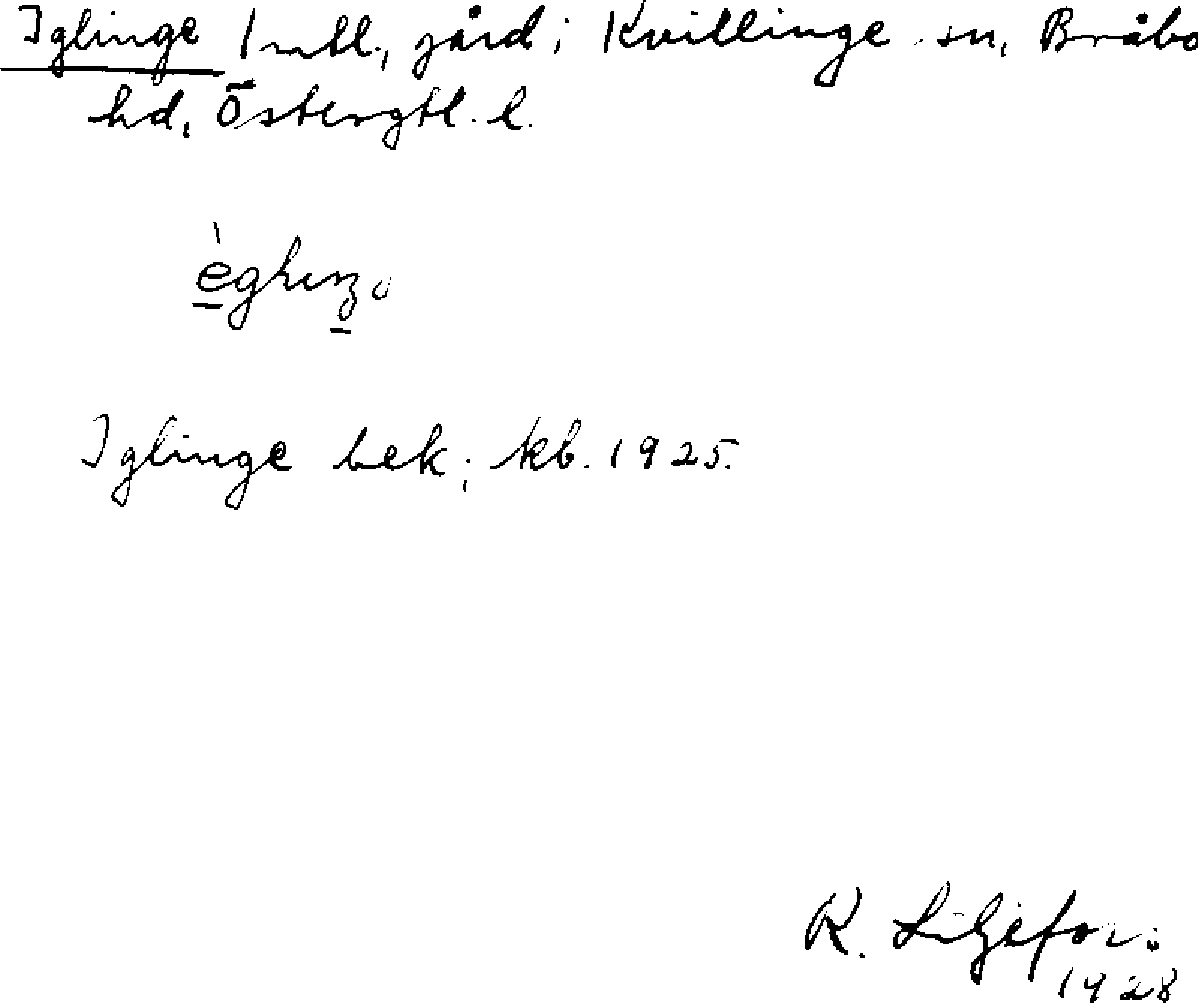 Iglinge 1 mtl., gård i Kvillinge sn, Bråbo
hd, Östergtl. l.
Iglinge bek; kb. 1925.
R. Liljefors
1928